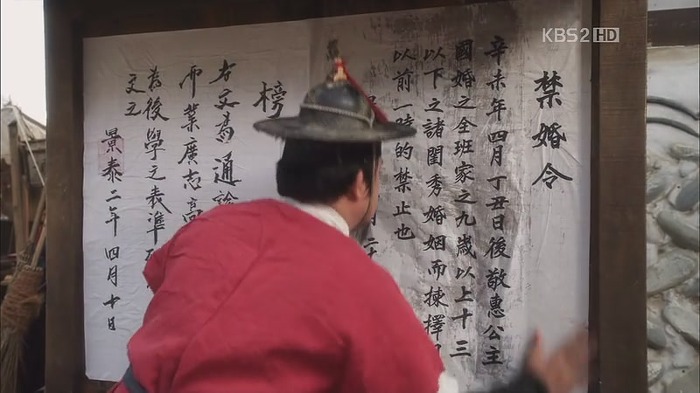 KBS2 HD
禁婚令
辛未年四月丁丑日後敬惠公主
國婚之全班家之九歲以上十三
以下之諸閨秀婚姻而揀擇
以前一時的禁止也
月二十
榜
右文爲通
而業廣志高
為後學之表準
景泰二年 四月十日